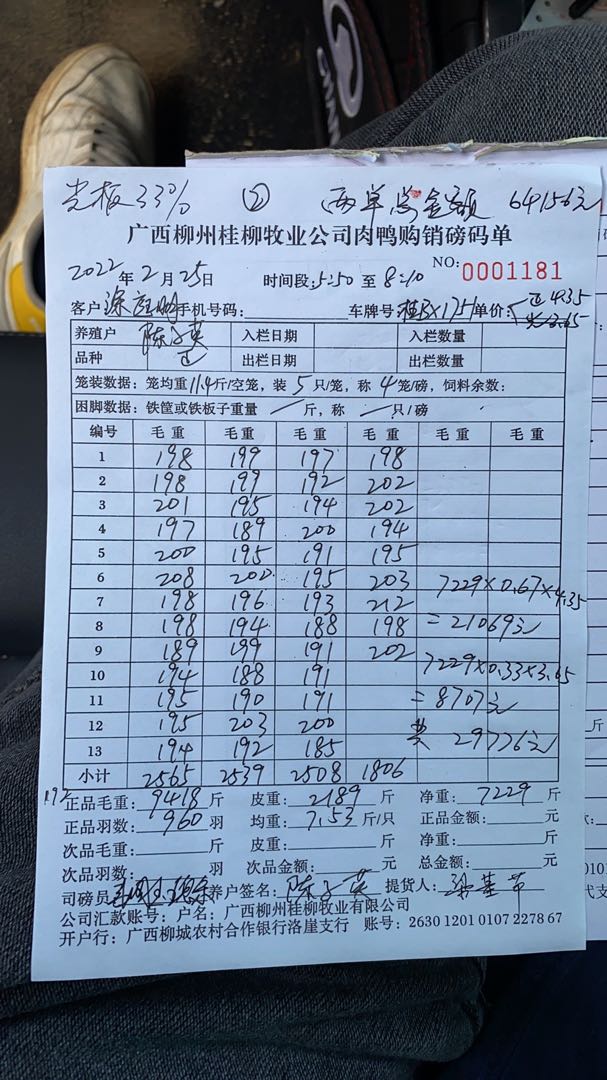 光板33% ② 两单总金额 64156元
广西柳州桂柳牧业公司肉鸭购销磅码单
2022年2月25日 时间段:5:50 至 8:10 NO: 0001181
客户 手机号码: 车牌号: 桂BX1751 单价: 正4.35 光3.65
养殖户 陈子英 入栏日期 入栏数量
品种 正 出栏日期 出栏数量
笼装数据: 笼均重11.4斤/空笼, 装 5 只/笼, 称 4 笼/磅, 饲料余数:
困脚数据: 铁筐或铁板子重量 斤, 称 只/磅
编号 毛重 毛重 毛重 毛重 毛重 毛重
1 198 199 197 198
2 198 199 192 202
3 201 195 194 202
4 197 189 200 194
5 200 195 191 195
6 208 200 195 203 7229×0.67×4.35
7 198 196 193 212
8 198 194 188 198 =21069元
9 189 199 191 202 7229×0.33×3.65
10 194 188 191
11 195 190 191 =8707元
12 195 203 200 共 29776元
13 194 192 185
小计 2565 2539 2508 1806
192
正品毛重: 9418 斤 皮重: 2189 斤 净重: 7229 斤
正品羽数: 960 羽 均重: 7.53 斤/只 正品金额: 元
次品毛重: 斤 皮重: 斤 净重: 斤
次品羽数: 羽 次品金额: 元 总金额: 元
司磅员 养户签名: 陈子英 提货人:
公司汇款账号: 户名: 广西柳州桂柳牧业有限公司
开户行: 广西柳城农村合作银行洛崖支行 账号: 2630 1201 0107 2278 67